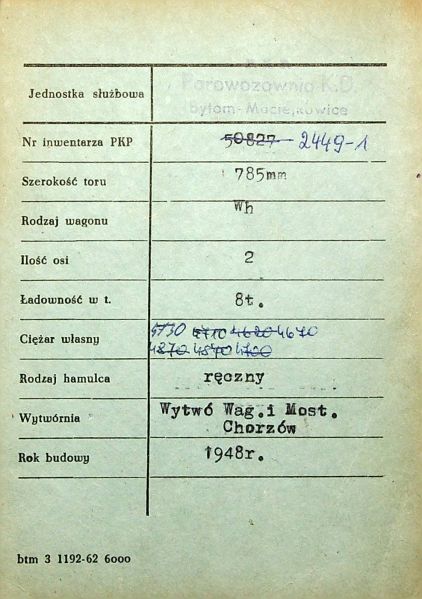 Jednostka służbowa
Parowozownia K.D.
bytom-Maciejkowice
Nr inwentarza PKP 50827 2449-1
Szerokość toru 785mm
Rodzaj wagonu Wh
Ilość osi 2
Ładowność w t. 8t.
Ciężar własny 4710 4620 4670
4870 4700
Rodzaj hamulca ręczny
Wytwórnia Wytwó Wag.i Most.
Chorzów
Rok budowy 1948r.
btm 3 1192-62 6000